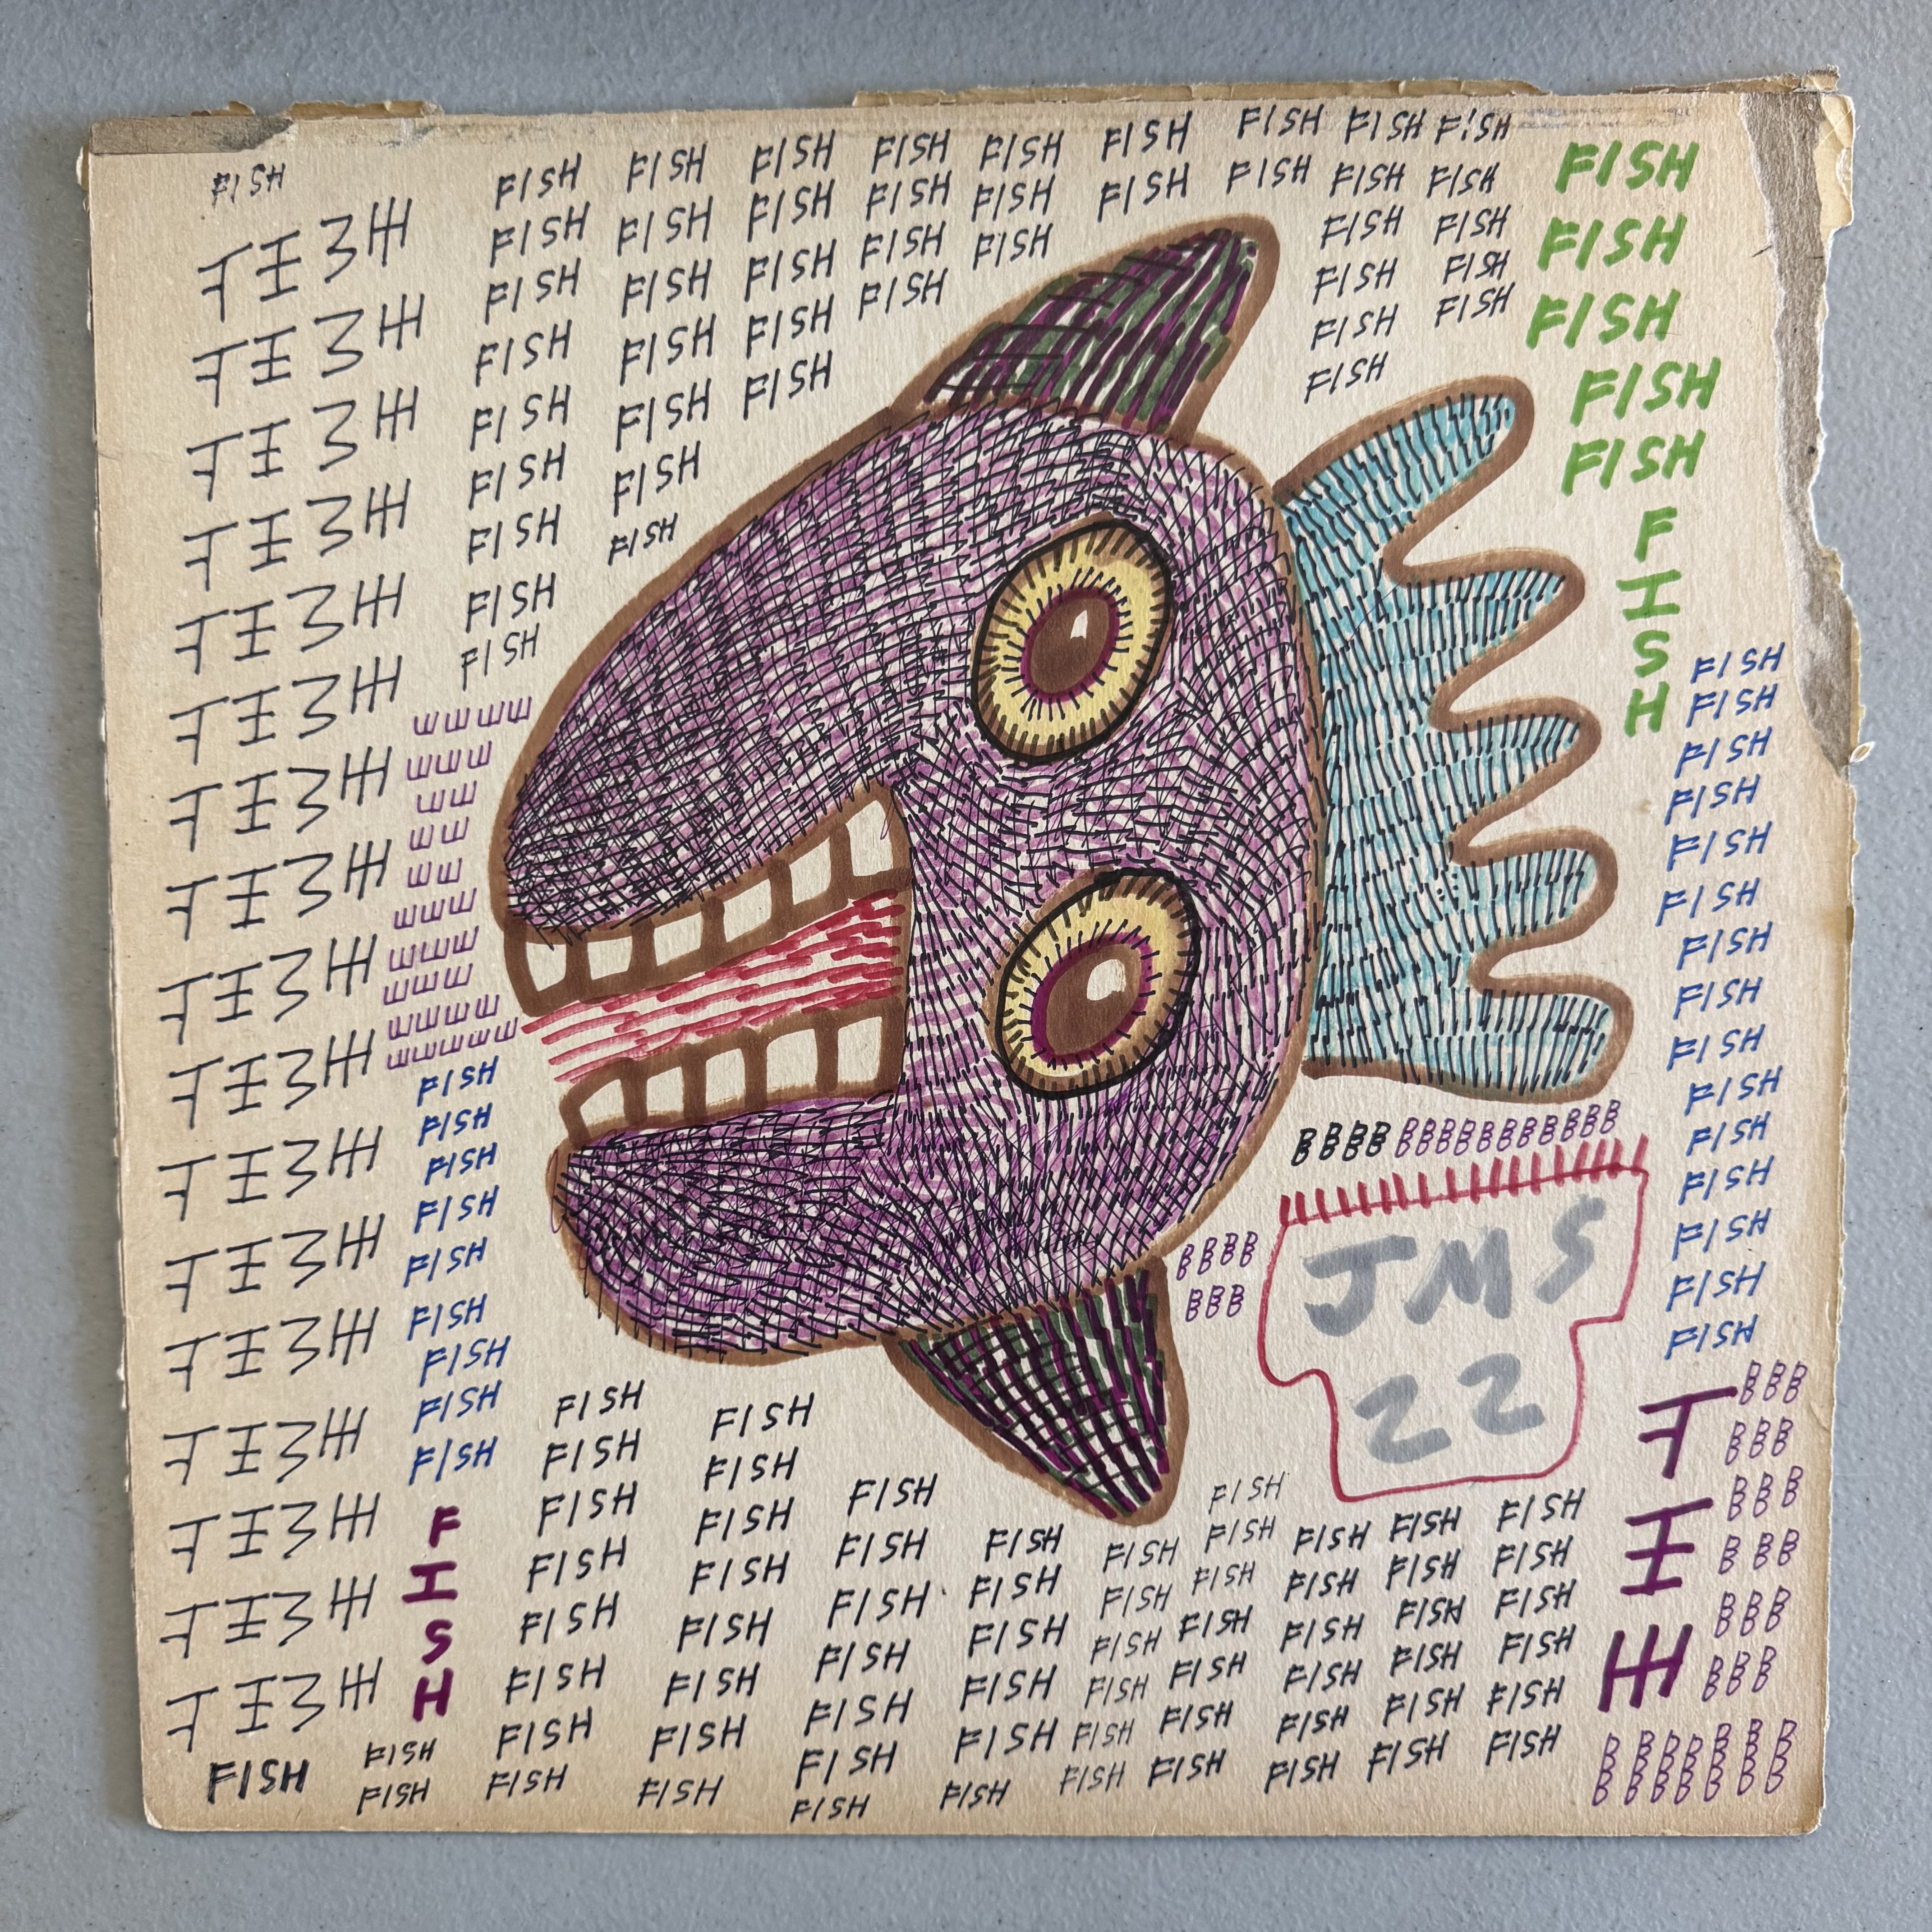 FISH
FISH
FISH
FISH
FISH
FISH
FISH
FISH
FISH
FISH
FISH
FISH
FISH
FISH
FISH
FISH
FISH
FISH
FISH
FISH
FISH
FISH
FISH
FISH
FISH
FISH
FISH
FISH
EEEE
EEE
EE
EE
EE
EEE
EEEE
EEE
EEEE
EEEEEE
FISH
FISH
FISH
FISH
FISH
FISH
FISH
FISH
FISH
F
I
S
H
FISH
FISH
FISH
FISH
FISH
FISH
FISH
FISH
FISH
FISH
FISH
FISH
FISH
FISH
FISH
FISH
FISH
FISH
FISH
FISH
FISH
FISH
FISH
FISH
FISH
FISH
FISH
FISH
FISH
FISH
FISH
FISH
FISH
FISH
FISH
FISH
FISH
FISH
FISH
FISH
FISH
F
I
S
H
FISH
FISH
FISH
FISH
FISH
FISH
FISH
FISH
FISH
FISH
FISH
FISH
FISH
FISH
FISH
BBBBBBBBBBBBBBB
BBBB
BBB
JMS
22
FISH
FISH
FISH
FISH
FISH
FISH
FISH
FISH
FISH
FISH
FISH
FISH
FISH
FISH
FISH
FISH
FISH
FISH
FISH
FISH
FISH
FISH
FISH
FISH
FISH
FISH
FISH
FISH
FISH
FISH
FISH
FISH
FISH
FISH
FISH
FISH
FISH
FISH
FISH
FISH
FISH
FISH
FISH
FISH
FISH
FISH
FISH
FISH
FISH
FISH
FISH
FISH
FISH
FISH
FISH
FISH
FISH
FISH
FISH
FISH
F
I
H
BBB
BBB
BBB
BBB
BBB
BBB
BBBBBBB